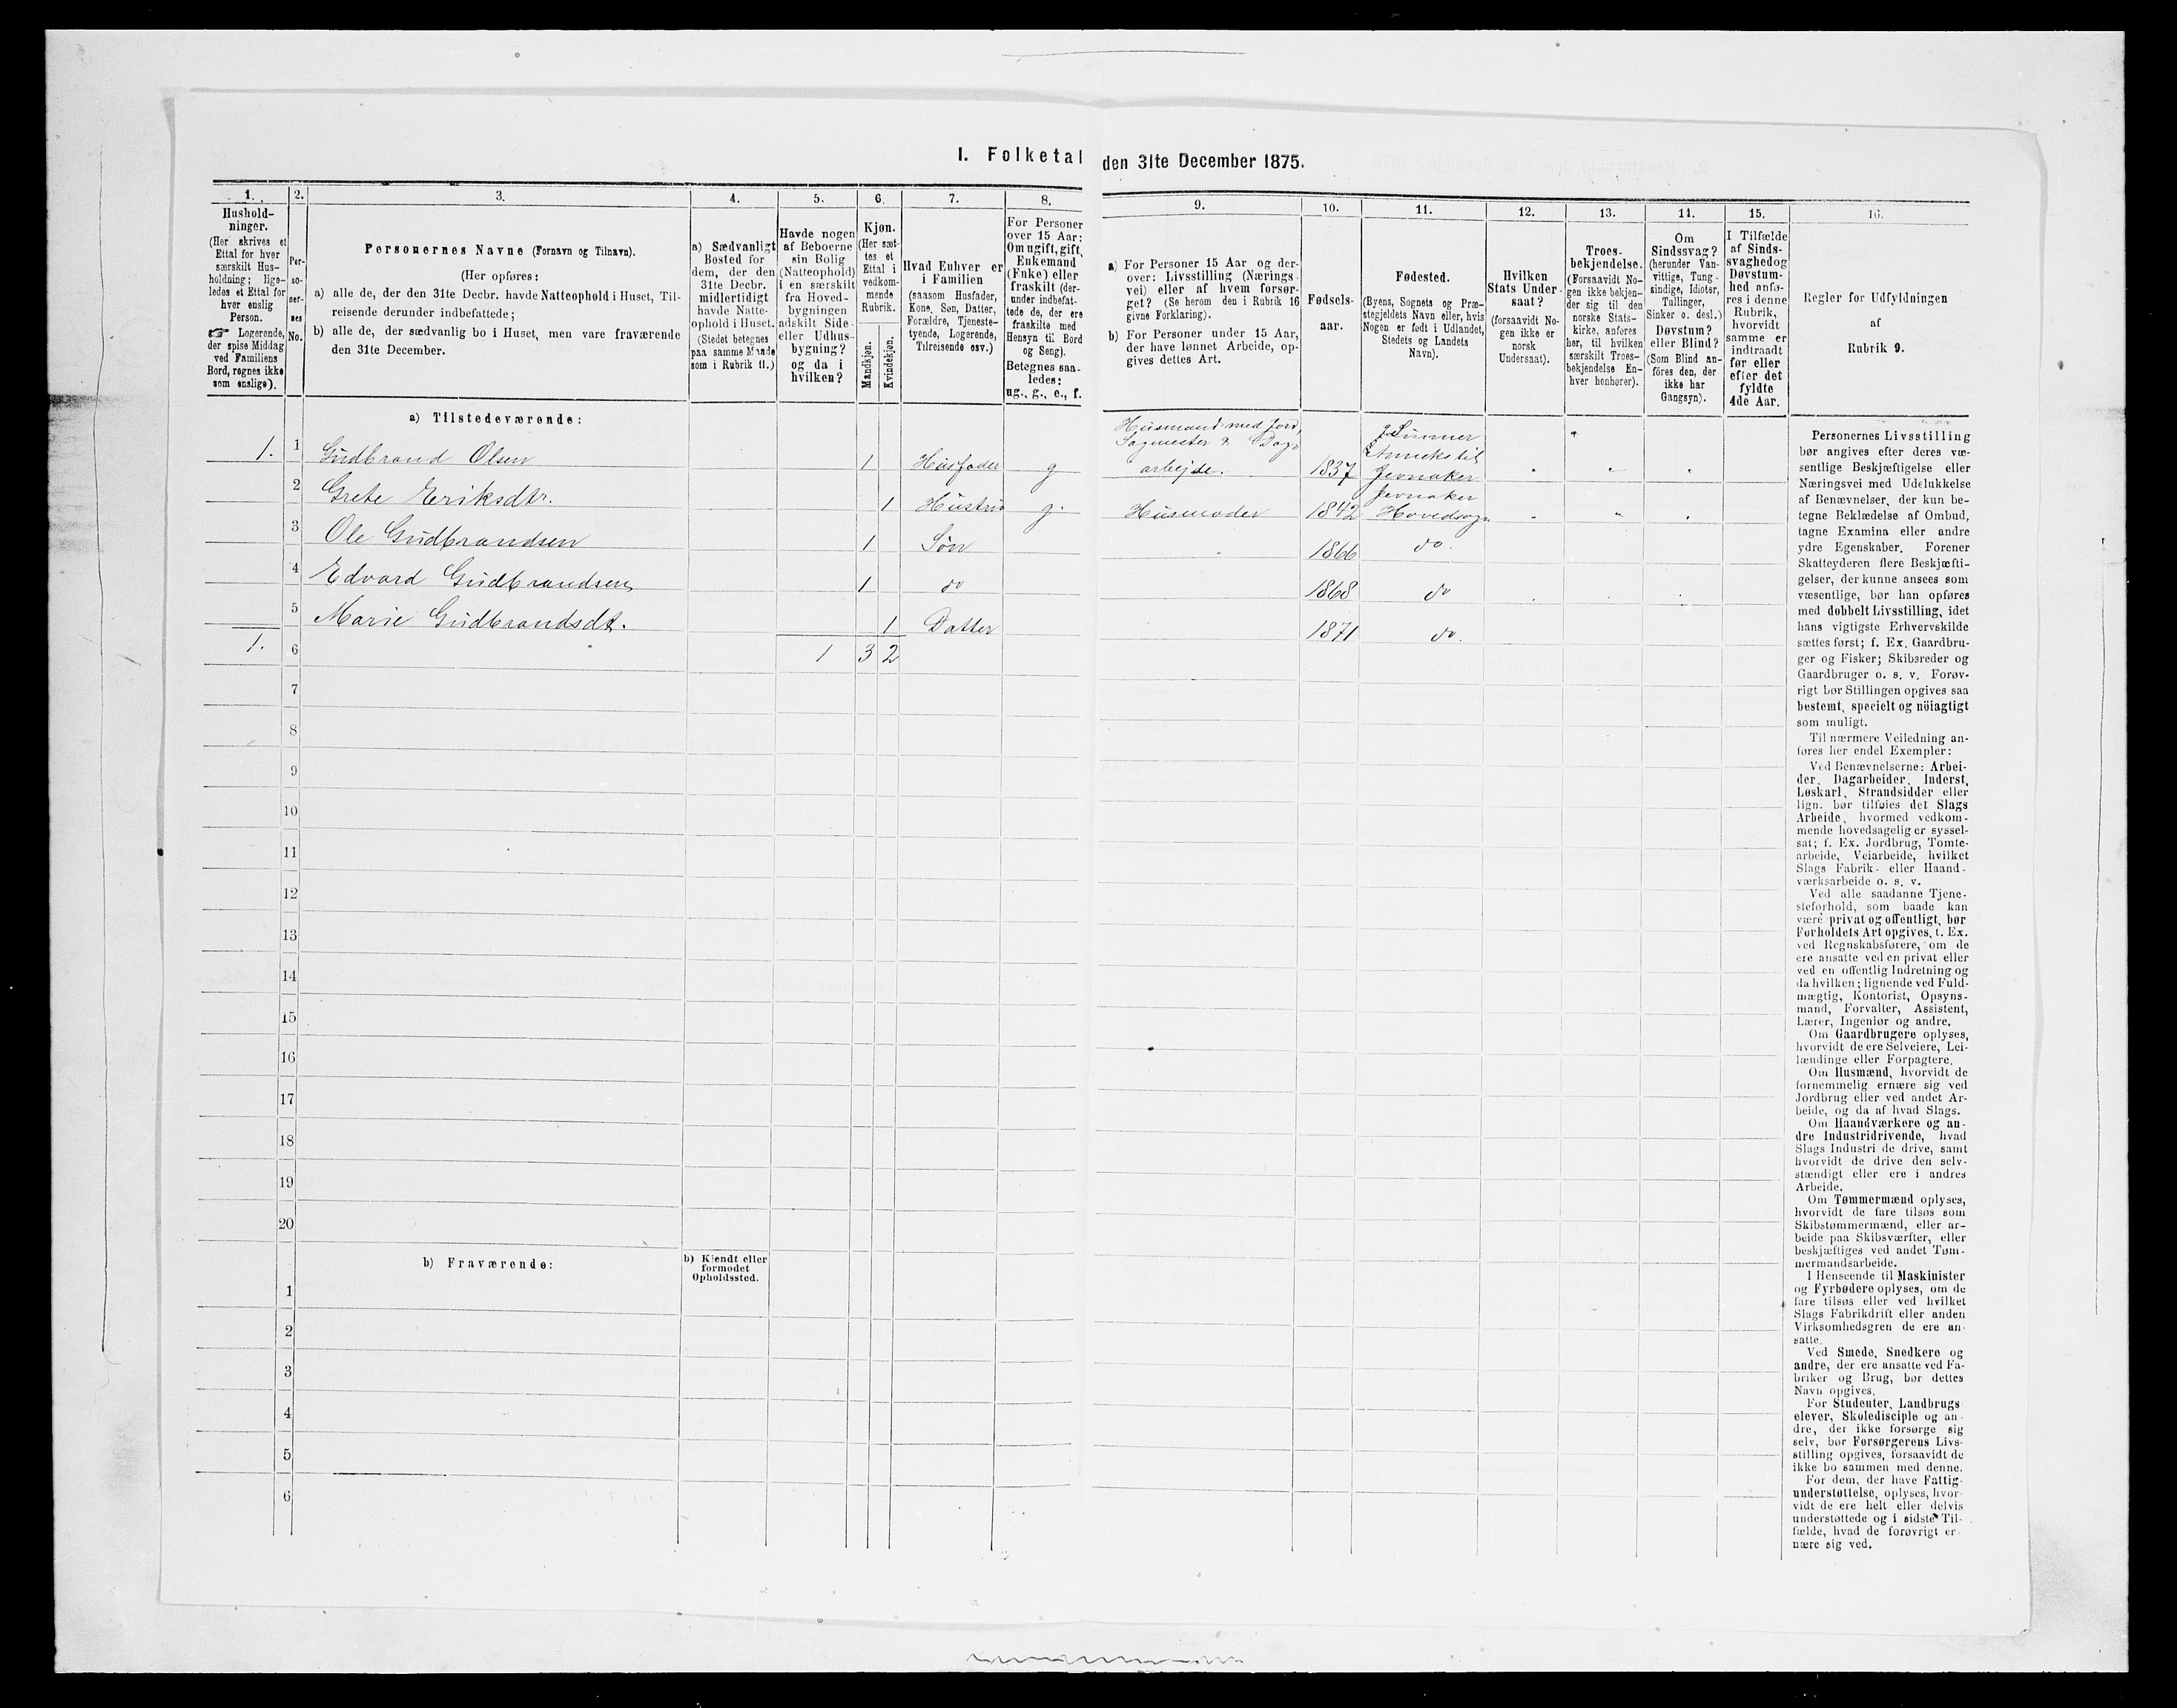 I. Folketal den 31te December 1875.
1.
Hushold-
ninger.
(Her skrives et
Ettal for hver
særskilt Hus-
holdning; lige-
ledes et Ettal for
hver enslig
Person.
☞ Logerende,
der spise Middag
ved Familiens
Bord, regnes ikke
som enslige).
2.
Per-
so-
ner-
nes
No.
3.
Personernes Navne (Fornavn og Tilnavn).
(Her opføres:
a) alle de, der den 31te Decbr. havde Natteophold i Huset, Til-
reisende derunder indbefattede;
b) alle de, der sædvanlig bo i Huset, men vare fraværende
den 31te December.
4.
a) Sædvanligt
Bosted for
dem, der den
31te Decbr.
midlertidigt
havde Natte-
ophold i Huset.
(Stedet betegnes
paa samme Maade
som i Rubrik 11.)
5.
Havde nogen
af Beboerne
sin Bolig
(Natteophold)
i en særskilt
fra Hoved-
bygningen
adskilt Side-
eller Udhus-
bygning?
og da i
hvilken?
6.
Kjøn.
(Her sæt-
tes et
Ettal i
vedkom-
mende
Rubrik.
Mandkjøn.
Kvindekjøn.
7.
Hvad Enhver er
i Familien
(saasom Husfader,
Kone, Søn, Datter,
Forældre, Tjeneste-
tyende, Logerende,
Tilreisende osv.)
8.
For Personer
over 15 Aar:
Om ugift, gift,
Enkemand
(Enke) eller
fraskilt (der-
under indbefat-
tede de, der ere
fraskilte med
Hensyn til Bord
og Seng).
Betegnes saa-
ledes:
ug., g., e., f.
9.
a) For Personer 15 Aar og der-
over: Livsstilling (Nærings-
vei) eller af hvem forsør-
get? (Se herom den i Rubrik 16
givne Forklaring).
b) For Personer under 15 Aar,
der have lønnet Arbeide, op-
gives dettes Art.
10.
Fødsels-
aar.
11.
Fødested.
(Byens, Sognets og Præ-
stegjeldets Navn eller, hvis
Nogen er født i Udlandet,
Stedets og Landets
Navn).
12.
Hvilken
Stats Under-
saat?
(forsaavidt No-
gen ikke er
norsk
Undersaat).
13.
Troes-
bekjendelse.
(Forsaavidt No-
gen ikke bekjen-
der sig til den
norske Stats-
kirke, anføres
her, til hvilken
særskilt Troes-
bekjendelse En-
hver henhører).
14.
Om
Sindssvag?
(herunder Van-
vittige, Tung-
sindige, Idioter,
Tullinger,
Sinker o. desl.)
Døvstum?
eller Blind?
(Som Blind an-
føres den, der
ikke har
Gangsyn).
15.
I Tilfælde
af Sinds-
svaghed og
Døvstum-
hed anfø-
res i denne
Rubrik,
hvorvidt
samme er
indtraadt
før eller
efter det
fyldte
4de Aar.
16.
Regler for Udfyldningen
af
Rubrik 9.
a) Tilstedeværende:
1. 1 Gudbrand Olsen 1 Husfader g Husmand med Jord, Sagmester & Dag- arbejde. 1837 Lunner Anneks til Jevnaker
2 Grete Eriksdtr. 1 Hustru g. Husmoder 1842 Jevnaker Hovedsogn
3 Ole Gudbrandsen 1 Søn 1866 do.
4 Edvard Gudbrandsen 1 do 1868 do
5 Marie Gudbrandsdt. 1 Datter 1871 do.
1. 6 1 3 2
7
8
9
10
11
12
13
14
15
16
17
18
19
20
b) Fraværende:
b) Kjendt eller
formodet
Opholdssted.
1
2
3
4
5
6
Personernes Livsstilling
bør angives efter deres væ-
sentlige Beskjæftigelse eller
Næringsvei med Udelukkelse
af Benævnelser, der kun be-
tegne Beklædelse af Ombud,
tagne Examina eller andre
ydre Egenskaber. Forener
Skatteyderen flere Beskjæfti-
gelser, der kunne ansees som
væsentlige, bør han opføres
med dobbelt Livsstilling, idet
hans vigtigste Erhvervskilde
sættes først; f. Ex. Gaardbru-
ger og Fisker; Skibsreder og
Gaardbruger o. s. v. Forøv-
rigt bør Stillingen opgives saa
bestemt, specielt og nöiagtigt
som muligt.
Til nærmere Veiledning an-
føres her endel Exempler:
Ved Benævnelserne: Arbei-
der, Dagarbeider, Inderst,
Løskarl, Strandsidder eller
lign. bør tilføies det Slags
Arbeide, hvormed vedkom-
mende hovedsagelig er syssel-
sat; f. Ex. Jordbrug, Tomte-
arbeide, Veiarbeide, hvilket
Slags Fabrik- eller Haand-
værksarbeide o. s. v.
Ved alle saadanne Tjene-
steforhold, som baade kan
være privat og offentligt, bør
Forholdets Art opgives, f. Ex.
ved Regnskabsførere, om de
ere ansatte ved en privat eller
ved en offentlig Indretning og
da hvilken; lignende ved Fuld-
mægtig, Kontorist, Opsyns-
mand, Forvalter, Assistent,
Lærer, Ingeniør og andre.
Om Gaardbrugere oplyses,
hvorvidt de ere Selveiere, Lei-
lændinge eller Forpagtere.
Om Husmænd, hvorvidt de
fornemmelig ernære sig ved
Jordbrug eller ved andet Ar-
beide, og da af hvad Slags.
Om Haandværkere og an-
dre Industridrivende, hvad
Slags Industri de drive, samt
hvorvidt de drive den selv-
stændigt eller ere i andres
Arbeide.
Om Tømmermænd oplyses,
hvorvidt de fare tilsøs som
Skibstømmermænd, eller ar-
beide paa Skibsværfter, eller
beskjæftiges ved andet Tøm-
mermandsarbeide.
I Henseende til Maskinister
og Fyrbødere oplyses, om de
fare tilsøs eller ved hvilket
Slags Fabrikdrift eller anden
Virksomhedsgren de ere an-
satte.
Ved Smede, Snedkere og
andre, der ere ansatte ved Fa-
briker og Brug, bør dettes
Navn opgives.
For Studenter, Landbrugs-
elever, Skoledisciple og an-
dre, der ikke forsørge sig
selv, bør Forsørgerens Livs-
stilling opgives, forsaavidt de
ikke bo sammen med denne.
For dem, der have Fattig-
understøttelse, oplyses, hvor-
vidt de ere helt eller delvis
understøttede og i sidste Til-
fælde, hvad de forøvrigt er-
nære sig ved.